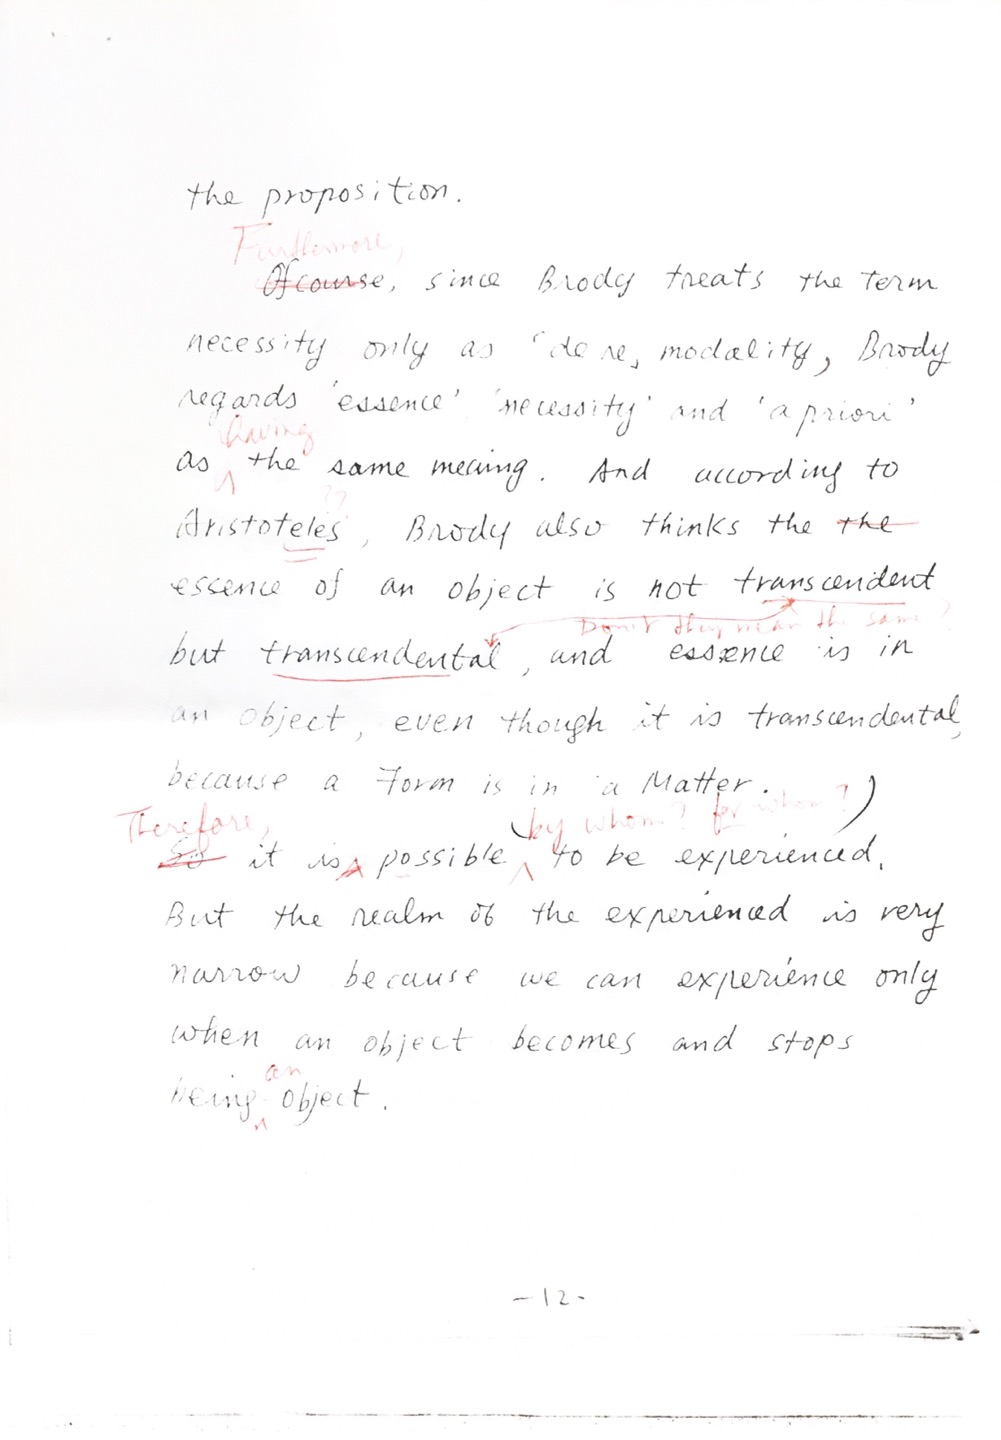 the proposition.
Furthermore,
Ofcourse, since Brody treats the term
necessity only as 'de re, modality, Brody
regards 'essence' 'necessity' and 'a priori'
having
as the same meaing. And according to
??
Aristoteles, Brody also thinks the the
essence of an object is not transcendent
Don't they mean the same?
but transcendental, and essence is in
an object, even though it is transcendental,
because a Form is in a Matter.
Therefore, (by whom? for whom?)
So it is possible to be experienced.
But the realm of the experienced is very
narrow because we can experience only
when an object becomes and stops
an
being object.
-12-